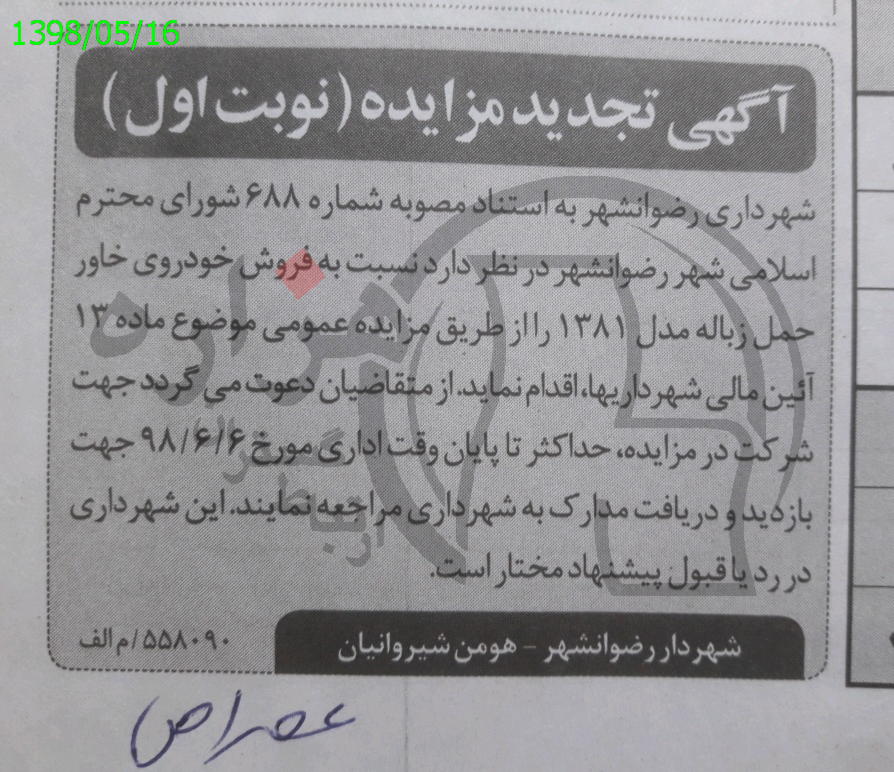 1398/05/16
آگهی تجدید مزایده (نوبت اول)
شهرداری رضوانشهر به استناد مصوبه شماره ۶۸۸ شورای محترم
اسلامی شهر رضوانشهر در نظر دارد نسبت به فروش خودروی خاور
حمل زباله مدل ۱۳۸۱ را از طریق مزایده عمومی موضوع ماده ۱۳
آئین مالی شهرداریها، اقدام نماید. از متقاضیان دعوت می گردد جهت
شرکت در مزایده، حداکثر تا پایان وقت اداری مورخ ۹۸/۶/۶ جهت
بازدید و دریافت مدارک به شهرداری مراجعه نمایند. این شهرداری
در رد یا قبول پیشنهاد مختار است.
شهردار رضوانشهر - هومن شیروانیان
۵۵۸۰۹۰/م الف